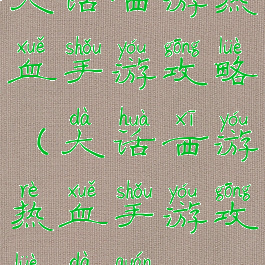 大话西游热
xuě shǒu yóu gōng lüè
血手游攻略
dà huà xī yóu
（大话西游
rè xuě shǒu yóu gōng
热血手游攻
lüè dà quán